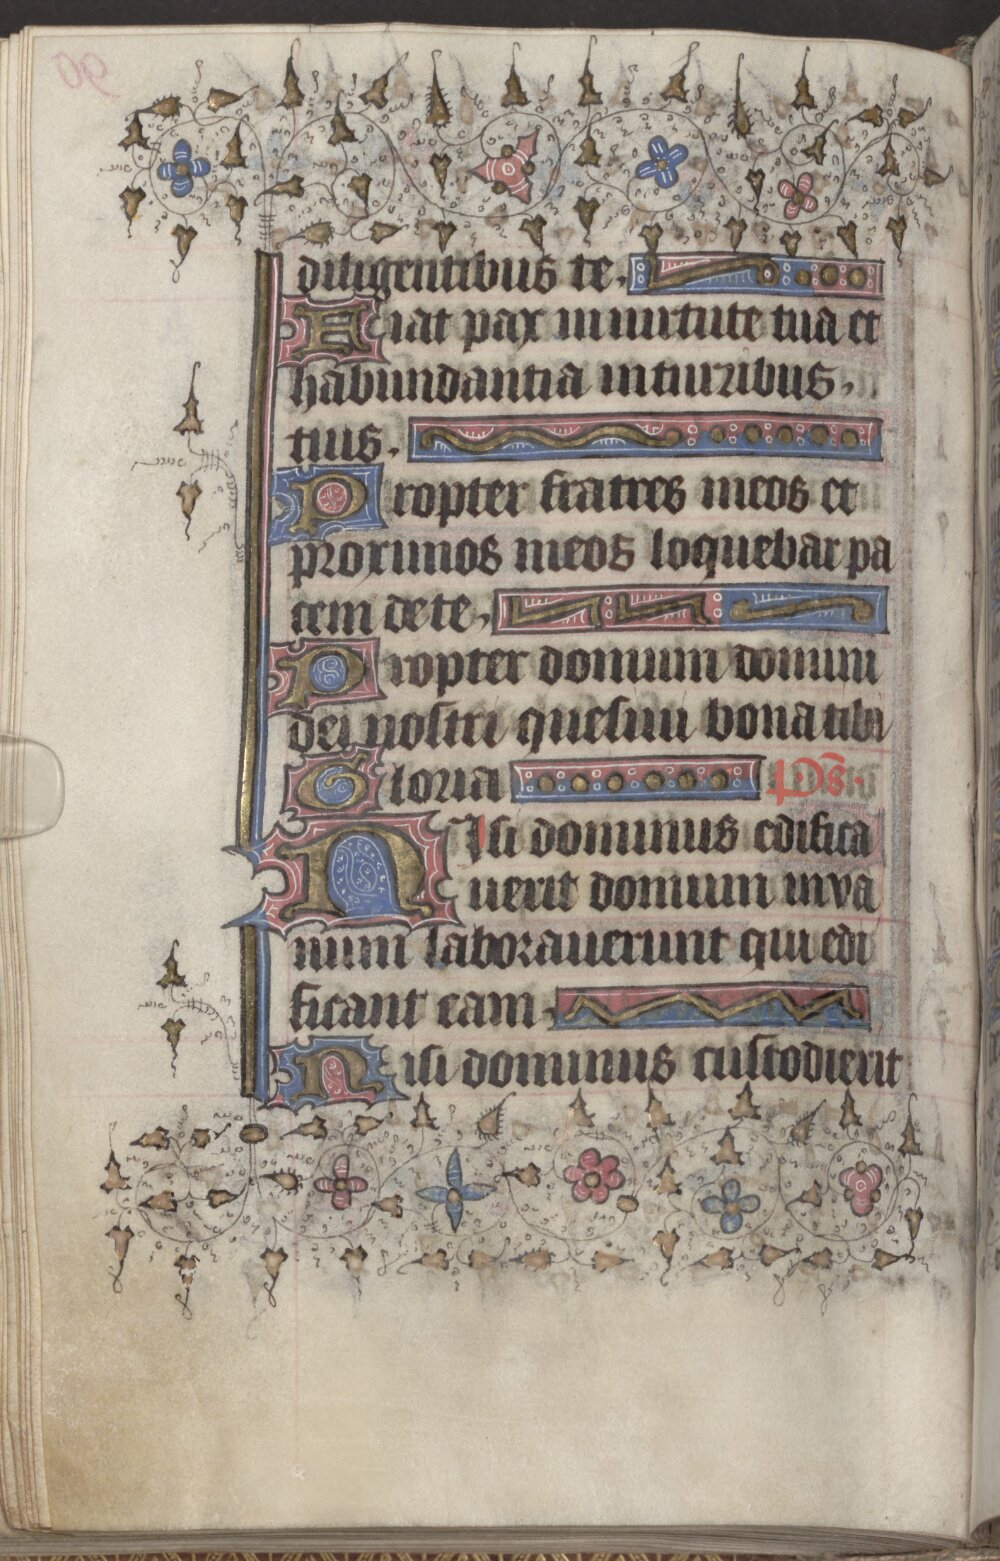 diligentibus te.
Fiat pax in uirtute tua et
habundantia in turribus
tuis.
Propter fratres meos et
proximos meos loquebar pa
cem de te.
Propter domum domini
dei nostri quesiui bona tibi
Gloria Ps̄.
Nisi dominus edifica
uerit domum in va
num laborauerunt qui edi
ficant eam.
Nisi dominus custodierit